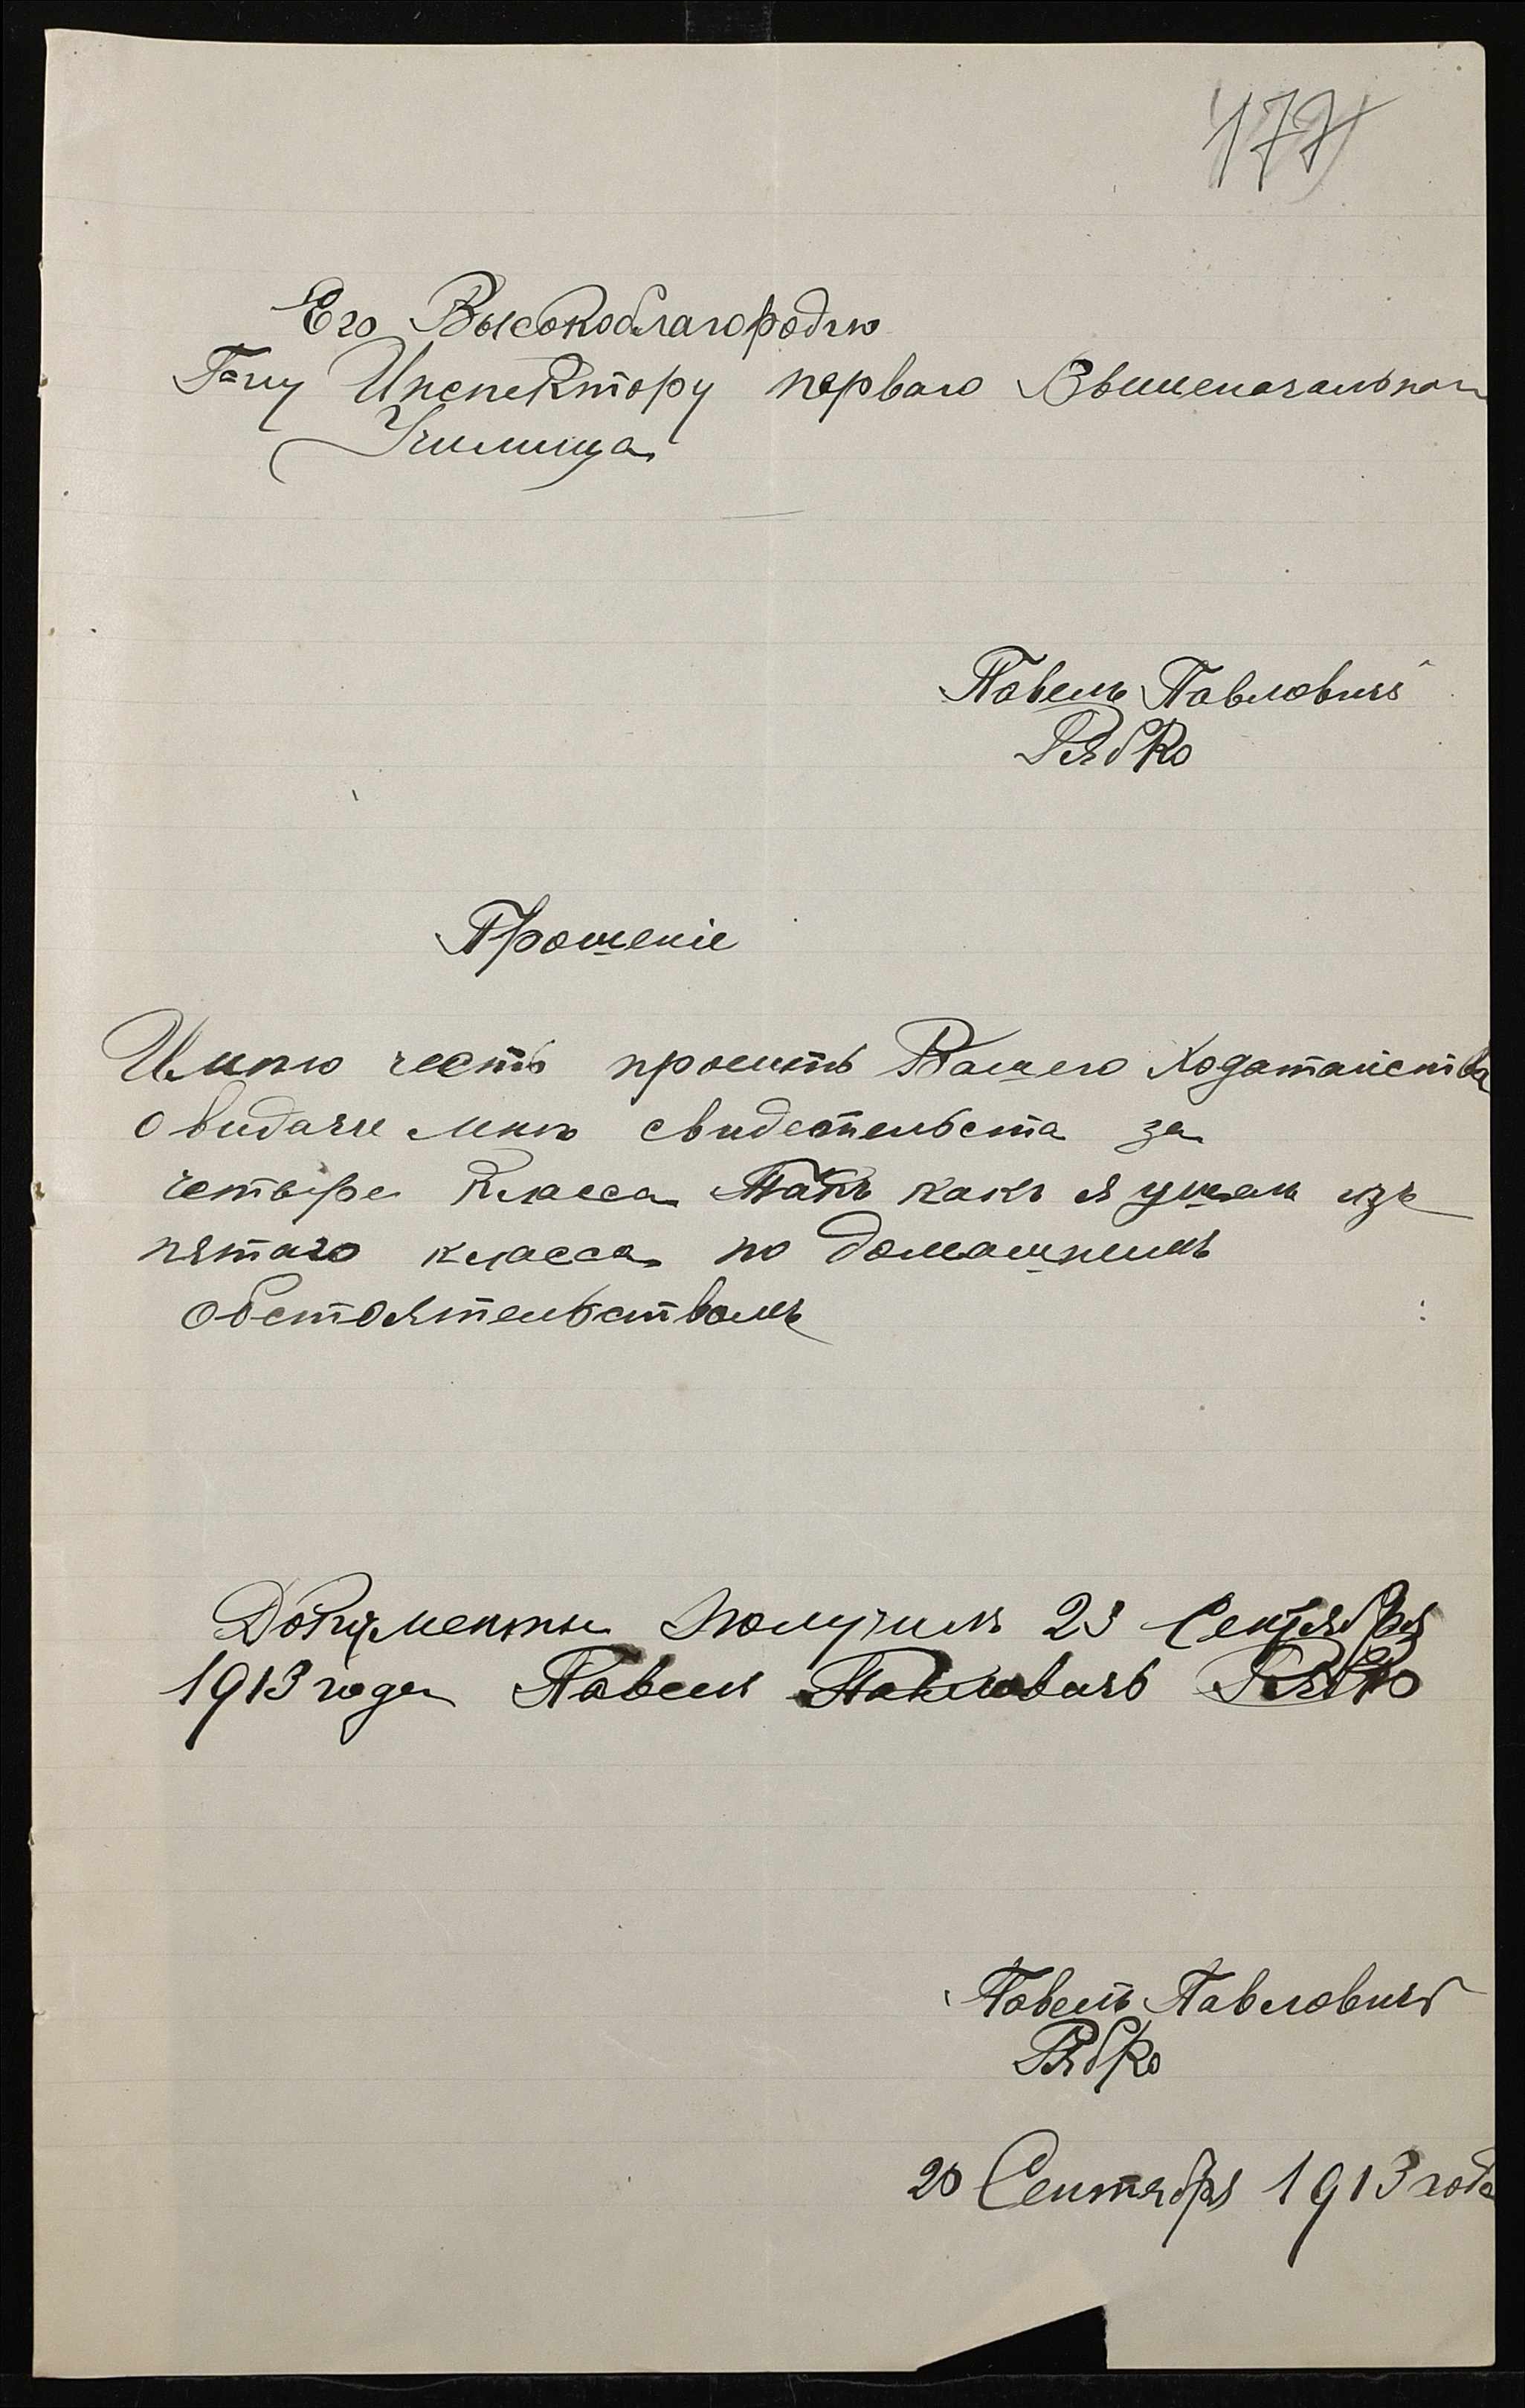 177
Его Высокоблагородію
Г=ну Инспектору перваго Вышеначальнаго
Училища
Павелъ Павловичъ
Рябко
Прошеніе
Имѣю честь просить Вашего Ходатайства
о видаче мнѣ свидетельста за
четыре Класса Такъ какъ я ушелъ изъ
пятаго класса по домашнимъ
обстоятельствамъ
Документы Получилъ 23 Сентября
1913 года Павелъ Павловичъ Рябко
Павелъ Павловичъ
Рябко
20 Сентября 1913 года